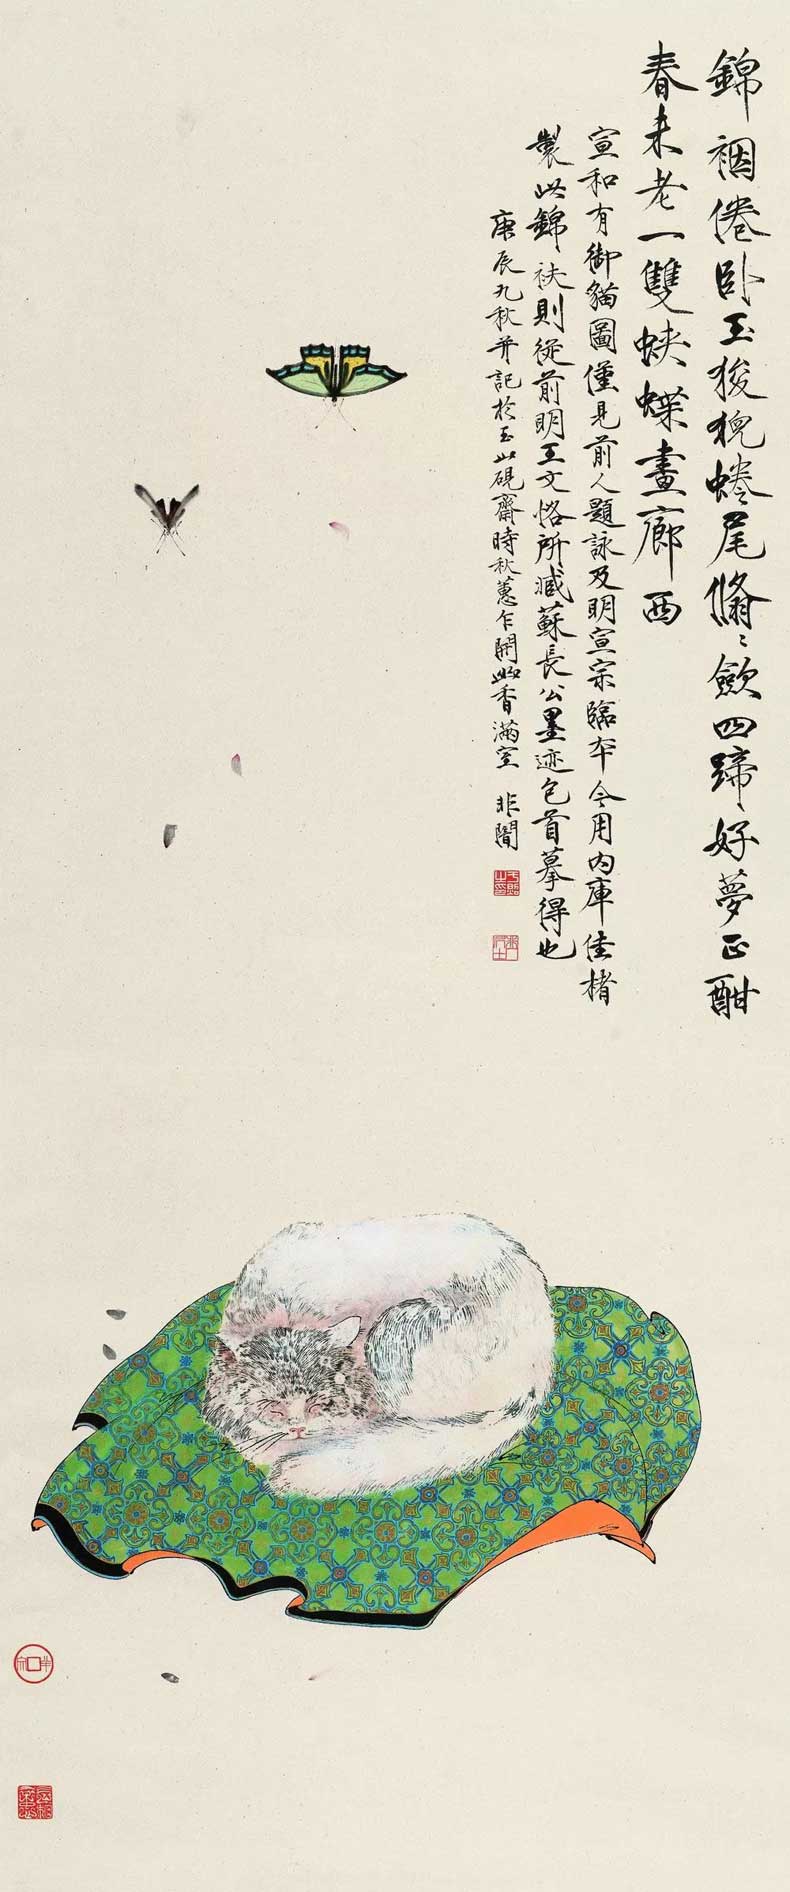 錦裀倦卧玉狻猊蜷尾翛〻歛四蹄好夢正酣
春未老一雙蛺蝶畫廊西
宣和有御貓圖僅見前人題詠及明宣宗臨本今用内庫佳楮
製此錦袱則從前明王文恪所臧蘇長公墨迹包首摹得也
庚辰九秋并記於玉山硯齋時秋蕙乍開幽香滿室 非闇